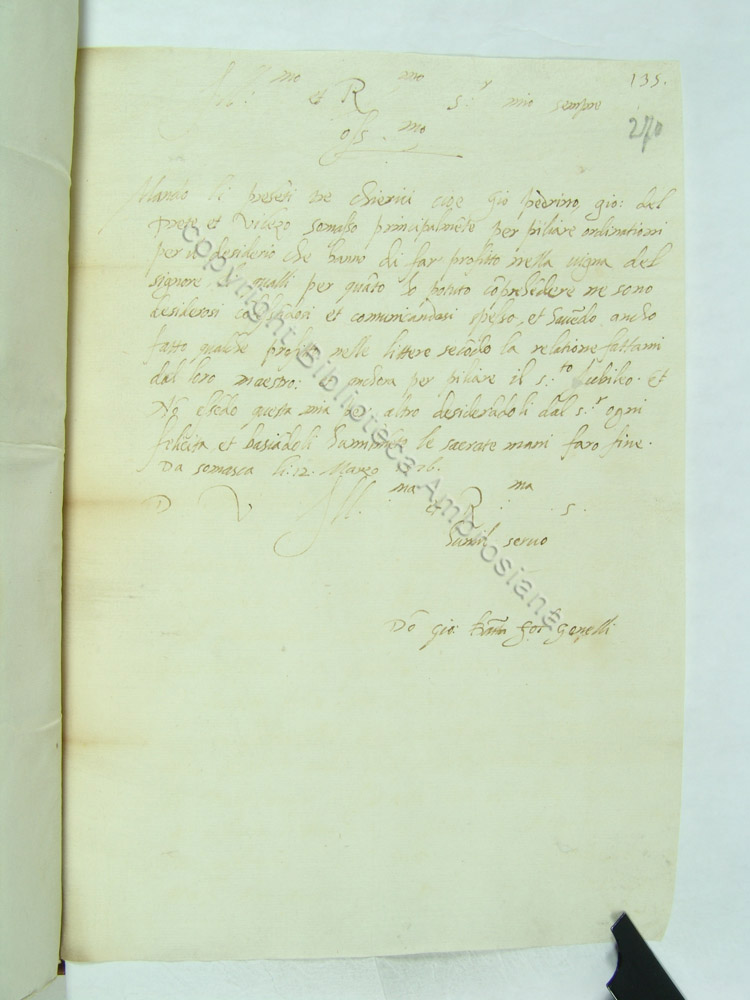 135.
Ill.mo et R.mo s.r mio sempre
oss.mo
270
Mando li preseti tre chierici cioe gio pietrino gio: del
prete et Vicezo somasco principalmēte per piliare ordinationi
per il desiderio che hanno di far profitto nella vigna del
signore li qualli per quāto ho potuto cōprehēdere ne sono
desiderosi et comunicandosi spesso, et havēdo ancho
fatto qualche profitto nelle littere secōdo la relatione fattami
dal loro maestro: anchora per piliare il s.to Jubileo. Et
Nō esēdo questa mia per altro desiderādoli dal s.r ogni
felicita et basiādoli humilmēte le sacrate mani faro fine.
Da somasca li 12. Marzo
D V Ill.ma et R.ma s.
humil servo
Dō gio:
copyright Biblioteca Ambrosiana